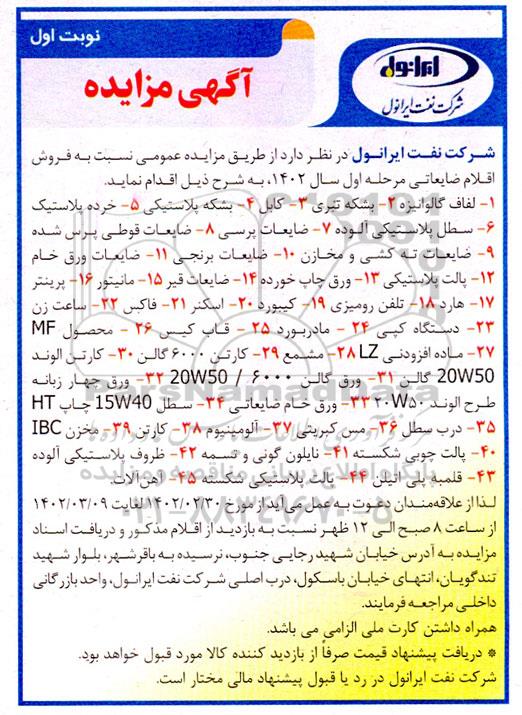 نوبت اول
ایرانول
شرکت نفت ایرانول
آگهی مزایده
شرکت نفت ایرانول در نظر دارد از طریق مزایده عمومی نسبت به فروش
اقلام ضایعاتی مرحله اول سال ۱۴۰۲، به شرح ذیل اقدام نماید.
۱- لفاف گالوانیزه ۲- بشکه تیری ۳- کابل ۴- بشکه پلاستیکی ۵- خرده پلاستیک
۶- سطل پلاستیکی آلوده ۷- ضایعات پرسی ۸- ضایعات قوطی پرس شده
۹- ضایعات ته کشی و مخازن ۱۰- ضایعات برنجی ۱۱- ضایعات ورق خام
۱۲- پالت پلاستیکی ۱۳- ورق چاپ خورده ۱۴- ضایعات قیر ۱۵- مانیتور ۱۶- پرینتر
۱۷- هارد ۱۸- تلفن رومیزی ۱۹- کیبورد ۲۰- اسکنر ۲۱- فاکس ۲۲- ساعت زن
۲۳- دستگاه کپی ۲۴- مادربورد ۲۵- قاب کیس ۲۶- محصول MF
۲۷- ماده افزودنی LZ ۲۸- مشمع ۲۹- کارتن ۶۰۰۰ گالن ۳۰- کارتن الوند
20W50 گالن ۳۱- ورق گالن ۶۰۰۰ / 20W50 ۳۲- ورق چهار زبانه
طرح الوند ۲۰W۵۰ ۳۳- ورق خام ضایعاتی ۳۴- سطل 15W40 چاپ HT
۳۵- درب سطل ۳۶- مس کبریتی ۳۷- آلومینیوم ۳۸- کارتن ۳۹- مخزن IBC
۴۰- پالت چوبی شکسته ۴۱- نایلون گونی و تسمه ۴۲- ظروف پلاستیکی آلوده
۴۳- قلمبه پلی اتیلن ۴۴- پالت پلاستیکی شکسته ۴۵- آهن آلات
لذا از علاقه‌مندان دعوت به عمل می‌آید از مورخ ۱۴۰۲/۰۲/۳۰ لغایت ۱۴۰۲/۰۳/۰۹
از ساعت ۸ صبح الی ۱۲ ظهر نسبت به بازدید از اقلام مذکور و دریافت اسناد
مزایده به آدرس خیابان شهید رجایی جنوب، نرسیده به باقرشهر، بلوار شهید
تندگویان، انتهای خیابان باسکول، درب اصلی شرکت نفت ایرانول، واحد بازرگانی
داخلی مراجعه فرمایند.
همراه داشتن کارت ملی الزامی می باشد.
* دریافت پیشنهاد قیمت صرفاً از بازدید کننده کالا مورد قبول خواهد بود.
شرکت نفت ایرانول در رد یا قبول پیشنهاد مالی مختار است.